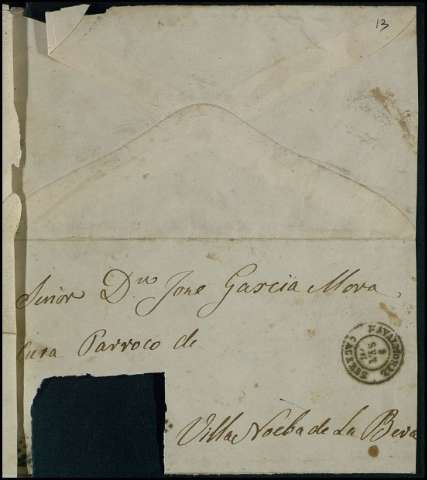 13
Señor Dn Jose Garcia Mora,
Cura Parroco de
Villa Noeba de La Bera
CACERES